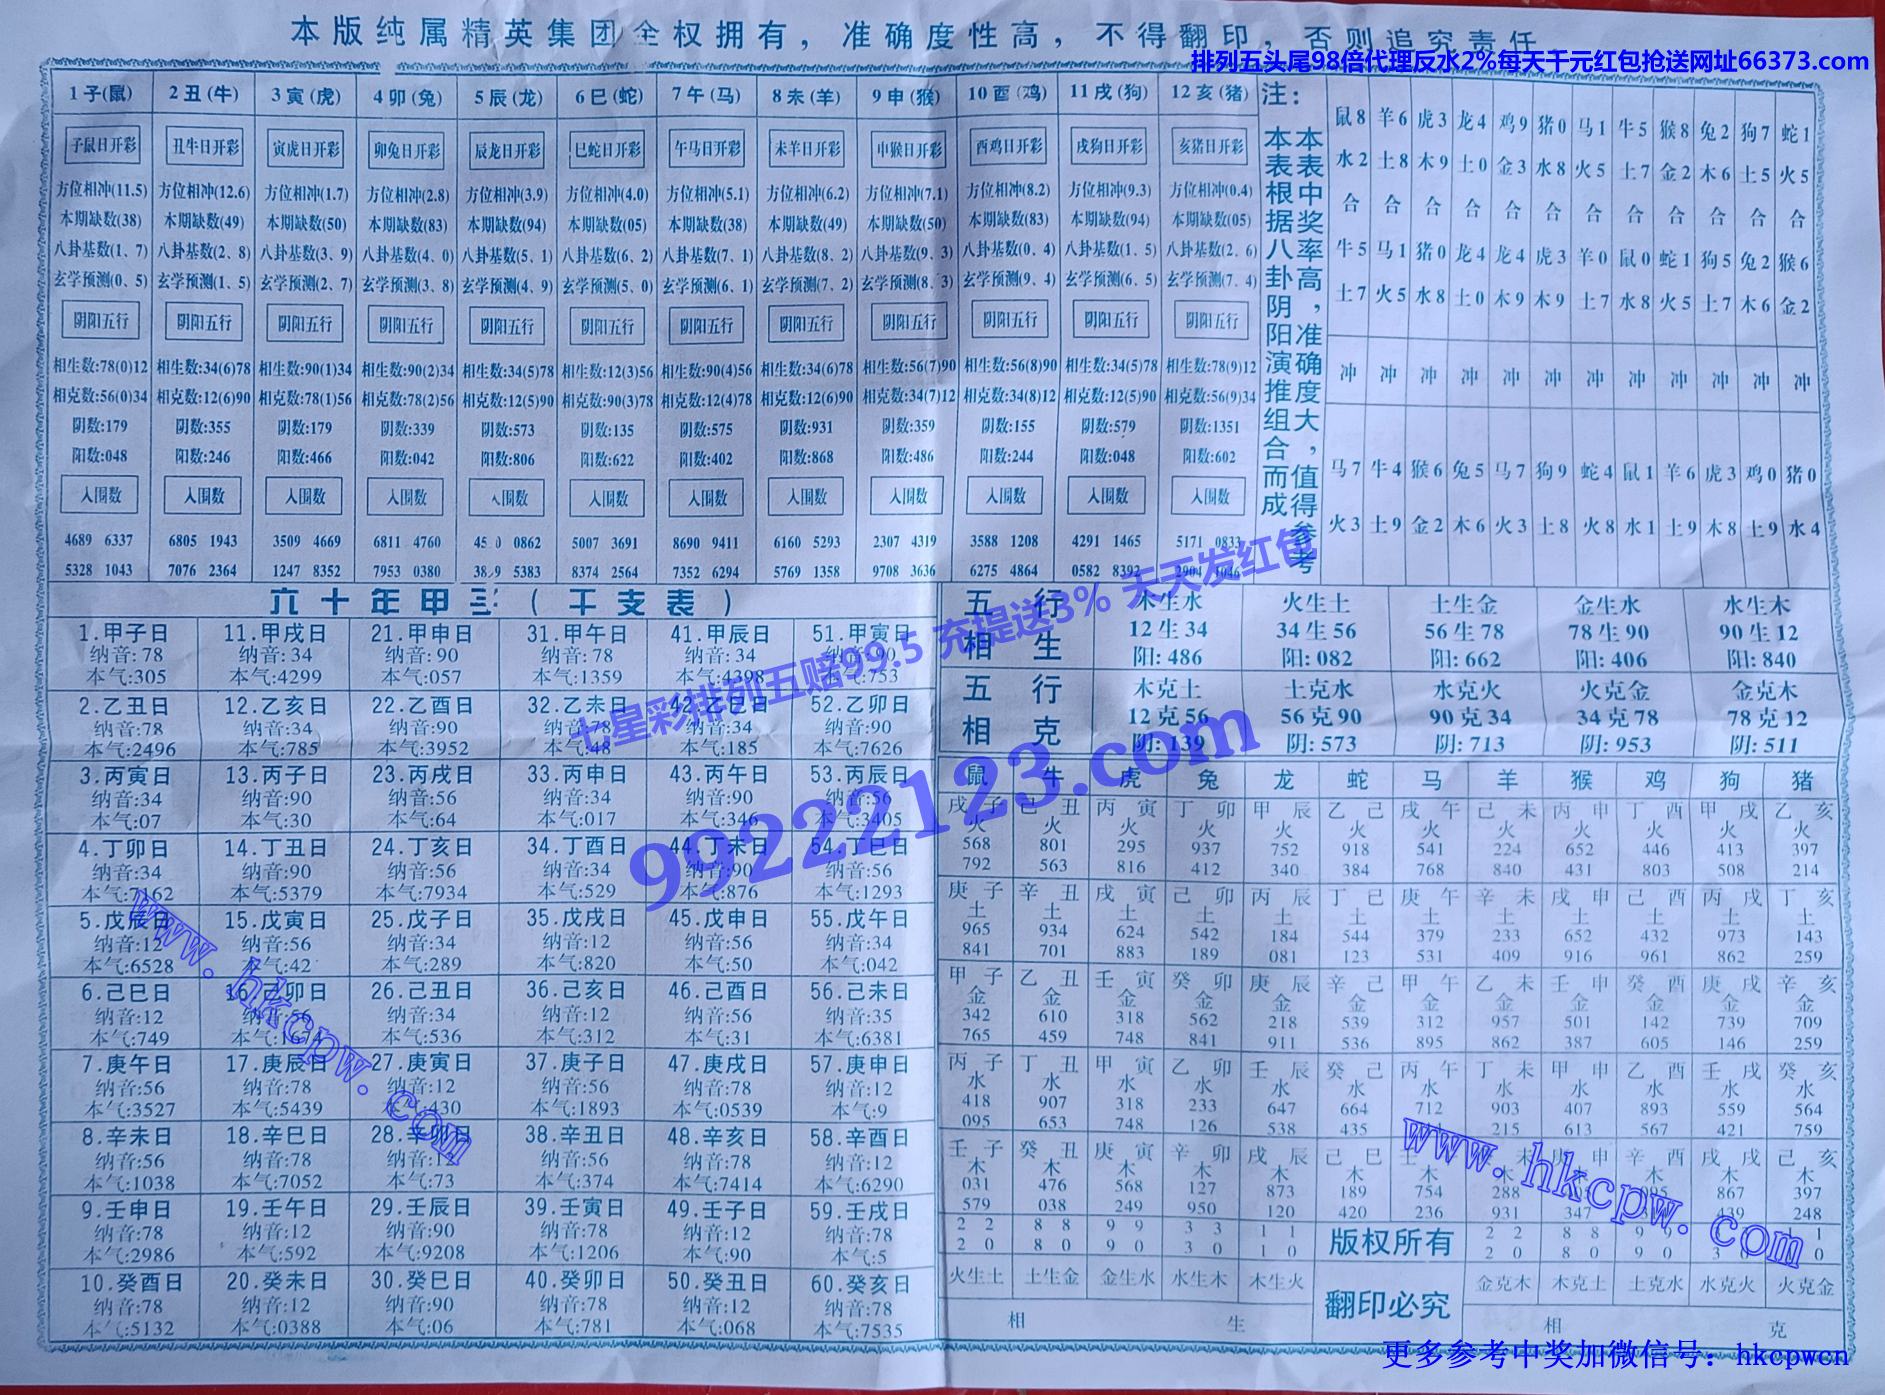 本版纯属精英集团全权拥有，准确度性高，不得翻印，否则追究责任
排列五头尾98倍代理反水2%每天千元红包抢送网址66373.com
1子(鼠) 2丑(牛) 3寅(虎) 4卯(兔) 5辰(龙) 6巳(蛇) 7午(马) 8未(羊) 9申(猴) 10酉(鸡) 11戌(狗) 12亥(猪)
子鼠日开彩 丑牛日开彩 寅虎日开彩 卯兔日开彩 辰龙日开彩 巳蛇日开彩 午马日开彩 未羊日开彩 申猴日开彩 酉鸡日开彩 戌狗日开彩 亥猪日开彩
方位相冲(11.5) 方位相冲(12.6) 方位相冲(1.7) 方位相冲(2.8) 方位相冲(3.9) 方位相冲(4.0) 方位相冲(5.1) 方位相冲(6.2) 方位相冲(7.1) 方位相冲(8.2) 方位相冲(9.3) 方位相冲(0.4)
本期缺数(38) 本期缺数(49) 本期缺数(50) 本期缺数(83) 本期缺数(94) 本期缺数(05) 本期缺数(38) 本期缺数(49) 本期缺数(50) 本期缺数(83) 本期缺数(94) 本期缺数(05)
八卦基数(1、7) 八卦基数(2、8) 八卦基数(3、9) 八卦基数(4、0) 八卦基数(5、1) 八卦基数(6、2) 八卦基数(7、1) 八卦基数(8、2) 八卦基数(9、3) 八卦基数(0、4) 八卦基数(1、5) 八卦基数(2、6)
玄学预测(0、5) 玄学预测(1、5) 玄学预测(2、7) 玄学预测(3、8) 玄学预测(4、9) 玄学预测(5、0) 玄学预测(6、1) 玄学预测(7、2) 玄学预测(8、3) 玄学预测(9、4) 玄学预测(6、5) 玄学预测(7、4)
阴阳五行 阴阳五行 阴阳五行 阴阳五行 阴阳五行 阴阳五行 阴阳五行 阴阳五行 阴阳五行 阴阳五行 阴阳五行 阴阳五行
相生数:78(0)12 相生数:34(6)78 相生数:90(1)34 相生数:90(2)34 相生数:34(5)78 相生数:12(3)56 相生数:90(4)56 相生数:34(6)78 相生数:56(7)90 相生数:56(8)90 相生数:34(5)78 相生数:78(9)12
相克数:56(0)34 相克数:12(6)90 相克数:78(1)56 相克数:78(2)56 相克数:12(5)90 相克数:90(3)78 相克数:12(4)78 相克数:12(6)90 相克数:34(7)12 相克数:34(8)12 相克数:12(5)90 相克数:56(9)34
阴数:179 阴数:355 阴数:179 阴数:339 阴数:573 阴数:135 阴数:575 阴数:931 阴数:359 阴数:155 阴数:579 阴数:1351
阳数:048 阳数:246 阳数:466 阳数:042 阳数:806 阳数:622 阳数:402 阳数:868 阳数:486 阳数:244 阳数:048 阳数:602
入围数 入围数 入围数 入围数 入围数 入围数 入围数 入围数 入围数 入围数 入围数 入围数
4689 6337 6805 1943 3509 4669 6811 4760 0862 5007 3691 8690 9411 6160 5293 2307 4319 3588 1208 4291 1465 5171 0833
5328 1043 7076 2364 1247 8352 7953 0380 5383 8374 2564 7352 6294 5769 1358 9708 3636 6275 4864 0582 8392 2904 1046
注：
本表根据八卦阴阳演推组合而成
本表中奖率高，准确度大，值得参考
鼠8 羊6 虎3 龙4 鸡9 猪0 马1 牛5 猴8 兔2 狗7 蛇1
水2 土8 木9 土0 金3 水8 火5 土7 金2 木6 土5 火5
合 合 合 合 合 合 合 合 合 合 合 合
牛5 马1 猪0 龙4 龙4 虎3 羊0 鼠0 蛇1 狗5 兔2 猴6
土7 火5 水8 土0 木9 木9 土7 水8 火5 土7 木6 金2
冲 冲 冲 冲 冲 冲 冲 冲 冲 冲 冲 冲
马7 牛4 猴6 兔5 马7 狗9 蛇4 鼠1 羊6 虎3 鸡0 猪0
火3 土9 金2 木6 火3 土8 火8 水1 土9 木8 土9 水4
六十年甲子（干支表）
1.甲子日 11.甲戌日 21.甲申日 31.甲午日 41.甲辰日 51.甲寅日
纳音:78 纳音:34 纳音:90 纳音:78 纳音:34 纳音:90
本气:305 本气:4299 本气:057 本气:1359 本气:4398 本气:753
2.乙丑日 12.乙亥日 22.乙酉日 32.乙未日 42.乙巳日 52.乙卯日
纳音:78 纳音:34 纳音:90 纳音:78 纳音:34 纳音:90
本气:2496 本气:785 本气:3952 本气:48 本气:185 本气:7626
3.丙寅日 13.丙子日 23.丙戌日 33.丙申日 43.丙午日 53.丙辰日
纳音:34 纳音:90 纳音:56 纳音:34 纳音:90 纳音:56
本气:07 本气:30 本气:64 本气:017 本气:346 本气:3405
4.丁卯日 14.丁丑日 24.丁亥日 34.丁酉日 44.丁未日 54.丁巳日
纳音:34 纳音:90 纳音:56 纳音:34 纳音:90 纳音:56
本气:7162 本气:5379 本气:7934 本气:529 本气:876 本气:1293
5.戊辰日 15.戊寅日 25.戊子日 35.戊戌日 45.戊申日 55.戊午日
纳音:12 纳音:56 纳音:34 纳音:12 纳音:56 纳音:34
本气:6528 本气:42 本气:289 本气:820 本气:50 本气:042
6.己巳日 16.己卯日 26.己丑日 36.己亥日 46.己酉日 56.己未日
纳音:12 纳音:56 纳音:34 纳音:12 纳音:56 纳音:35
本气:749 本气:1674 本气:536 本气:312 本气:31 本气:6381
7.庚午日 17.庚辰日 27.庚寅日 37.庚子日 47.庚戌日 57.庚申日
纳音:56 纳音:78 纳音:12 纳音:56 纳音:78 纳音:12
本气:3527 本气:5439 本气:430 本气:1893 本气:0539 本气:9
8.辛未日 18.辛巳日 28.辛卯日 38.辛丑日 48.辛亥日 58.辛酉日
纳音:56 纳音:78 纳音:12 纳音:56 纳音:78 纳音:12
本气:1038 本气:7052 本气:73 本气:374 本气:7414 本气:6290
9.壬申日 19.壬午日 29.壬辰日 39.壬寅日 49.壬子日 59.壬戌日
纳音:78 纳音:12 纳音:90 纳音:78 纳音:12 纳音:78
本气:2986 本气:592 本气:9208 本气:1206 本气:90 本气:5
10.癸酉日 20.癸未日 30.癸巳日 40.癸卯日 50.癸丑日 60.癸亥日
纳音:78 纳音:12 纳音:90 纳音:78 纳音:12 纳音:78
本气:5132 本气:0388 本气:06 本气:781 本气:068 本气:7535
五行相生
木生水 火生土 土生金 金生水 水生木
12生34 34生56 56生78 78生90 90生12
阳:486 阳:082 阳:662 阳:406 阳:840
五行相克
木克土 土克水 水克火 火克金 金克木
12克56 56克90 90克34 34克78 78克12
阴:139 阴:573 阴:713 阴:953 阴:511
鼠 牛 虎 兔 龙 蛇 马 羊 猴 鸡 狗 猪
戌子 己丑 丙寅 丁卯 甲辰 乙己 戌午 己未 丙申 丁酉 甲戌 乙亥
火 火 火 火 火 火 火 火 火 火 火 火
568 801 295 937 752 918 541 224 652 446 413 397
792 563 816 412 340 384 768 840 431 803 508 214
庚子 辛丑 戌寅 己卯 丙辰 丁己 庚午 辛未 戌申 己酉 丙戌 丁亥
土 土 土 土 土 土 土 土 土 土 土 土
965 934 624 542 184 544 379 233 652 432 973 143
841 701 883 189 081 123 531 409 916 961 862 259
甲子 乙丑 壬寅 癸卯 庚辰 辛己 甲午 乙未 壬申 癸酉 庚戌 辛亥
金 金 金 金 金 金 金 金 金 金 金 金
342 610 318 562 218 539 312 957 501 142 739 709
765 459 748 841 911 536 895 862 387 605 146 259
丙子 丁丑 甲寅 乙卯 壬辰 癸己 丙午 丁未 甲申 乙酉 壬戌 癸亥
水 水 水 水 水 水 水 水 水 水 水 水
418 907 318 233 647 664 712 903 407 893 559 564
095 653 748 126 538 435 215 613 567 421 759
壬子 癸丑 庚寅 辛卯 戌辰 己巳 壬 未 庚申 辛酉 戌戌 己亥
木 木 木 木 木 木 木 木 木 木
031 476 568 127 873 189 754 288 867 397
579 038 249 950 120 420 236 931 347 439 248
2 2 8 8 9 9 3 3 1 1 版权所有 2 2 8 8 9 9 1
2 0 8 0 9 0 3 0 1 0 2 0 8 0 9 0 3 0
火生土 土生金 金生水 水生木 木生火 金克木 木克土 土克水 水克火 火克金
翻印必究
相生 相克
七星彩排列五赔99.5 充提送3% 天天发红包
99222123.com
www.hkcpw.com
www.hkcpw.com
更多参考中奖加微信号：hkcpwcn